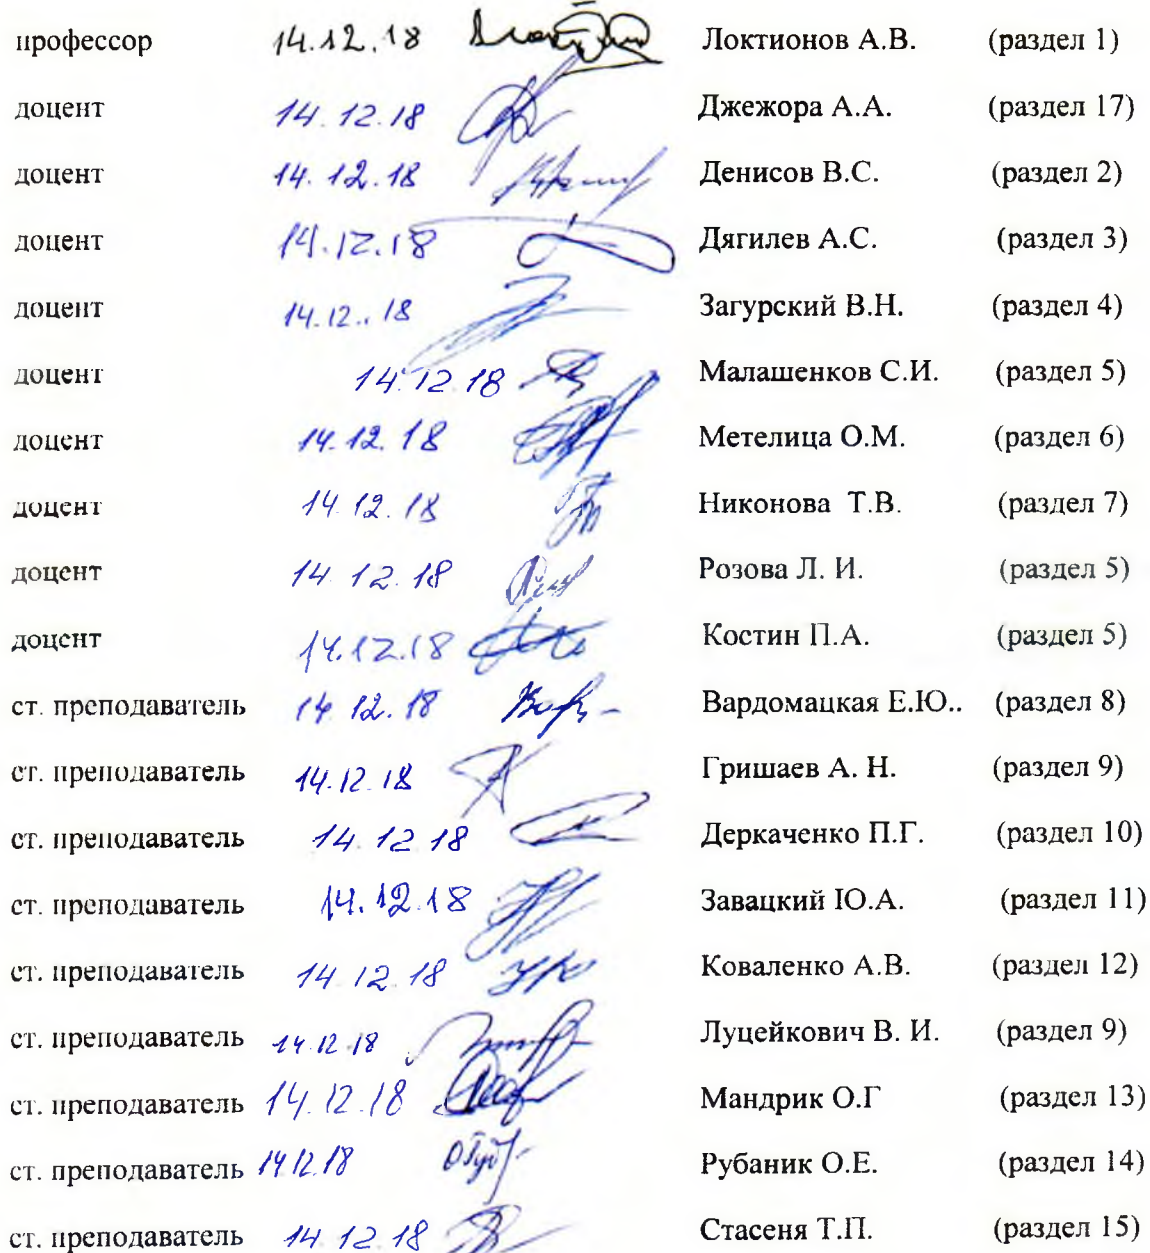 профессор 14.12.18 Локтионов А.В. (раздел 1)
доцент 14.12.18 Джежора А.А. (раздел 17)
доцент 14.12.18 Денисов В.С. (раздел 2)
доцент 14.12.18 Дягилев А.С. (раздел 3)
доцент 14.12.18 Загурский В.Н. (раздел 4)
доцент 14.12.18 Малашенков С.И. (раздел 5)
доцент 14.12.18 Метелица О.М. (раздел 6)
доцент 14.12.18 Никонова Т.В. (раздел 7)
доцент 14.12.18 Розова Л. И. (раздел 5)
доцент 14.12.18 Костин П.А. (раздел 5)
ст. преподаватель 14.12.18 Вардомацкая Е.Ю.. (раздел 8)
ст. преподаватель 14.12.18 Гришаев А. Н. (раздел 9)
ст. преподаватель 14.12.18 Деркаченко П.Г. (раздел 10)
ст. преподаватель 14.12.18 Завацкий Ю.А. (раздел 11)
ст. преподаватель 14.12.18 Коваленко А.В. (раздел 12)
ст. преподаватель 14.12.18 Луцейкович В. И. (раздел 9)
ст. преподаватель 14.12.18 Мандрик О.Г (раздел 13)
ст. преподаватель 14.12.18 Рубаник О.Е. (раздел 14)
ст. преподаватель 14.12.18 Стасеня Т.П. (раздел 15)